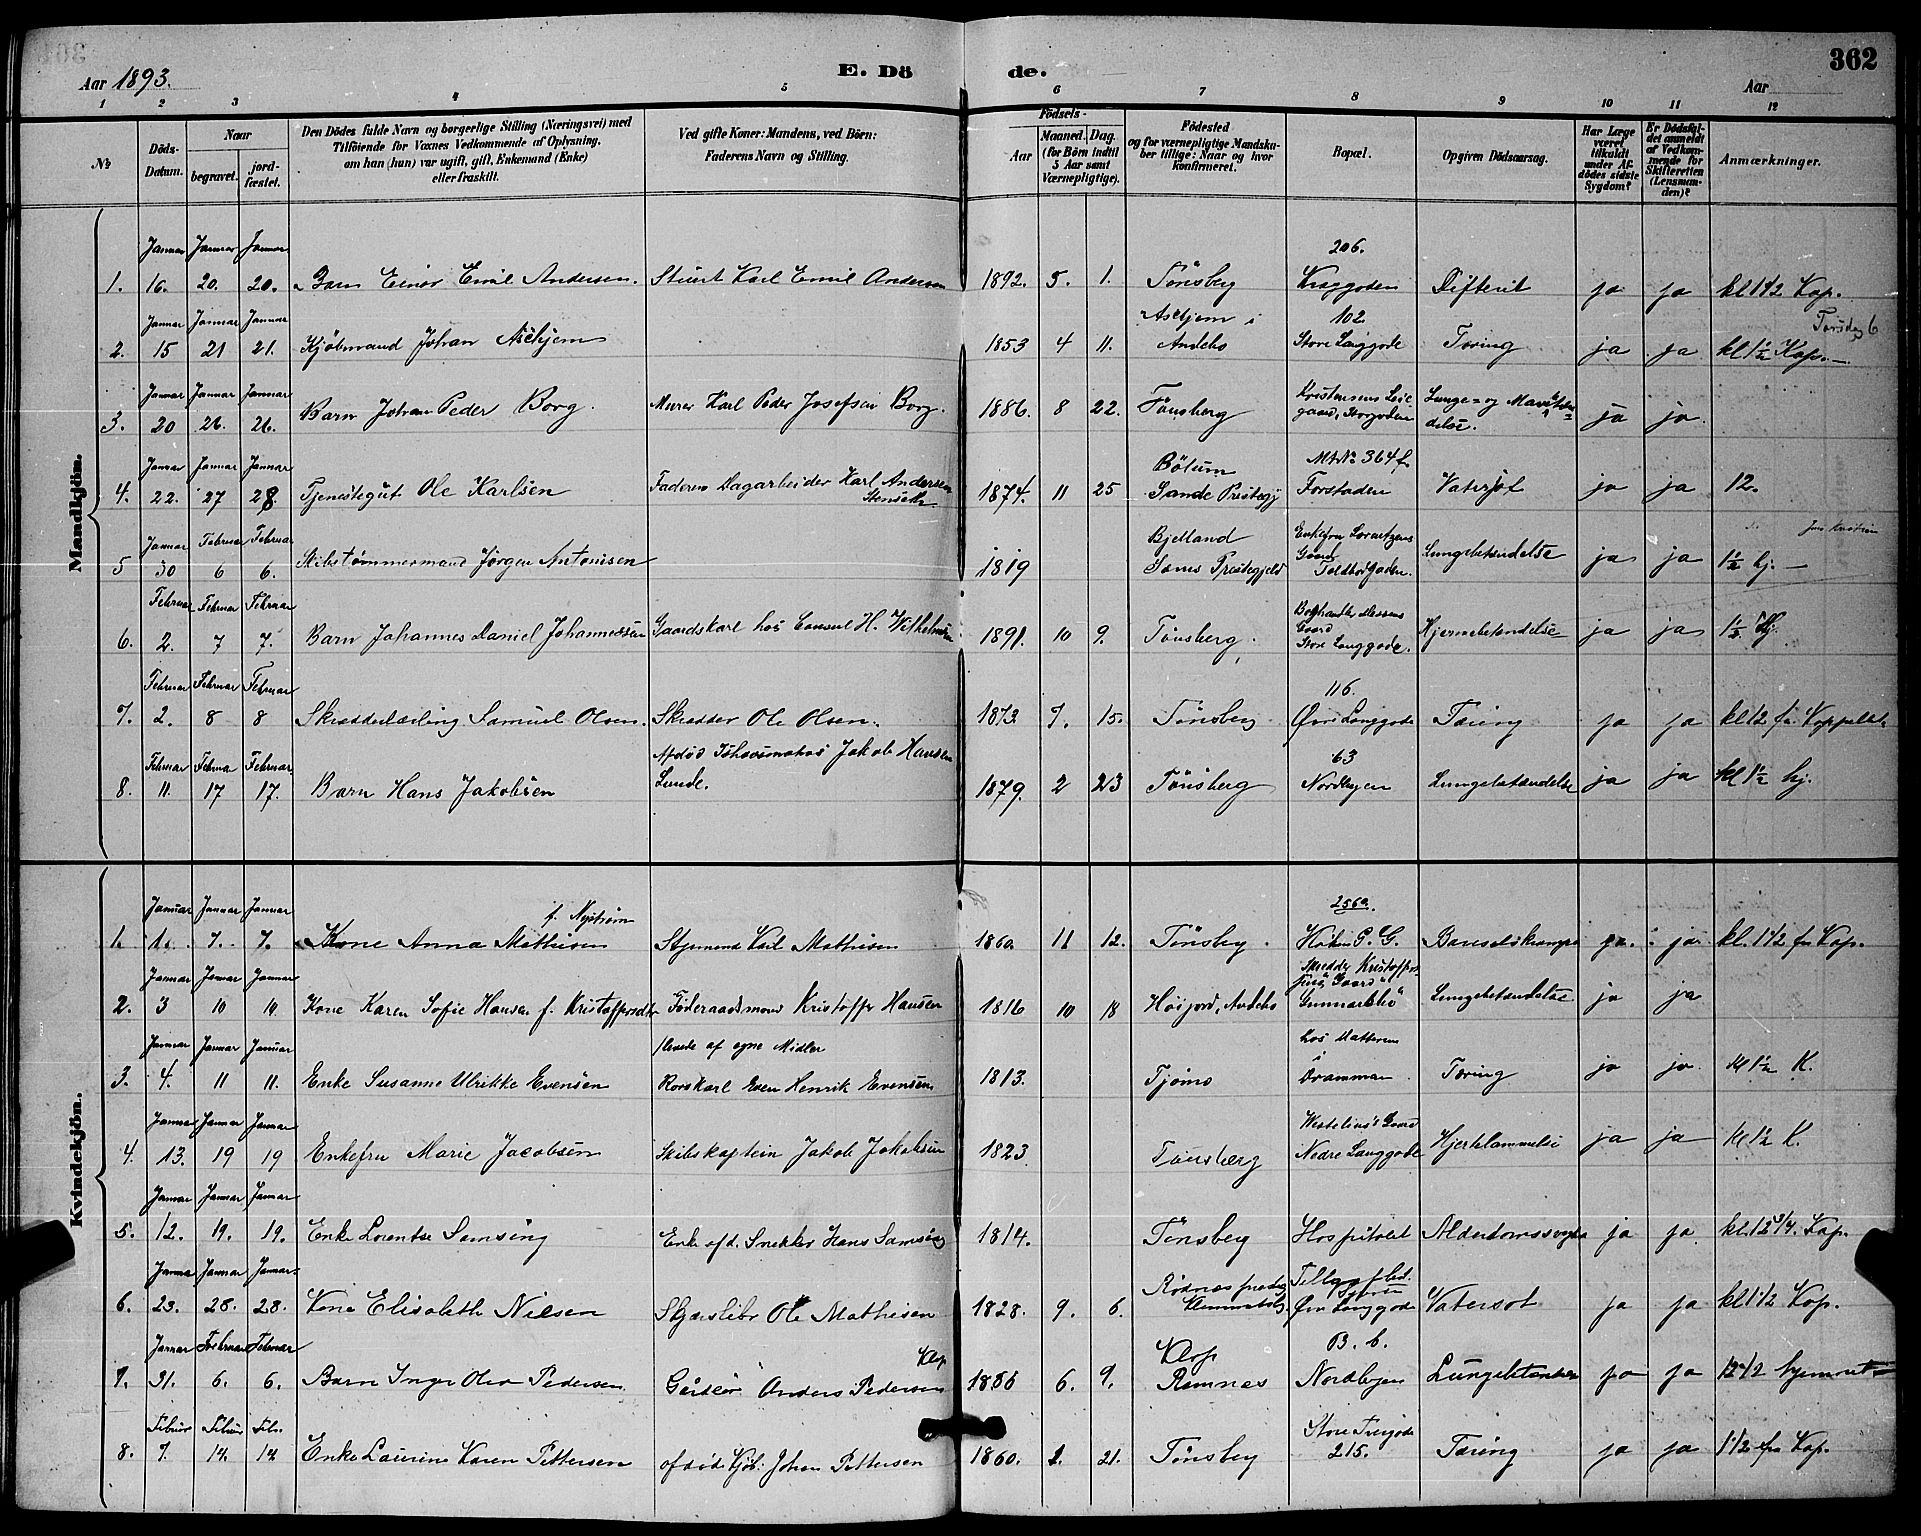 362
Aar 1893.
E. Döde.
Aar
1 2 3 4 5 6 7 8 9 10 11 12
No
Döds-Datum.
Naar
begravet.
jordfæstet.
Den Dödes fulde Navn og borgerlige Stilling (Næringsvei) med
Tilföiende for Voxnes Vedkommende af Oplysning,
om han (hun) var ugift, gift, Enkemand (Enke)
eller fraskilt.
Ved gifte Koner: Mandens, ved Börn:
Faderens Navn og Stilling.
Födsels-
Aar
Maaned. Dag.
(for Börn indtil
5 Aar samt
Værnepligtige).
Födested
og for værnepligtige Mandska-
ber tillige: Naar og hvor
konfirmeret.
Bopæl.
Opgiven Dödsaarsag.
Har Læge
været
tilkaldt
under Af-
dödes sidste
Sygdom?
Er Dödsfal-
det anmeldt
af Vedkom-
mende for
Skifteretten
(Lensman-
den)?
Anmærkninger.
Mandkjön.
Januar Januar Januar 206.
1. 16. 20. 20. Barn Einar Emil Andersen. Stuert Karl Emil Andersen 1892. 5. 1. Tönsberg Difterit ja ja kl 1 1/2 Kap.
Januar Januar Januar i 102
2. 15 21 21. Kjöbmand Johan Askjem 1853 4 11. Andebu Store Langgade Tæring ja ja kl 1 1/2 Kap. —
Januar Januar Januar
3. 20 26. 26. Barn Johan Peder Borg. Murer Karl Peder Josefsen Borg. 1886. 8 22. Tönsberg Lunge- og ja ja
Januar Januar Januar 364
4. 22. 27 28 Tjenestegut Ole Karlsen Faderen Dagarbeider Karl Andersen 1874. 11 25 Sande Forstaden Vatersot ja ja 12.
Januar Februar Februar Bjelland
5 30 6 6. Skibstömmermand Jörgen Antonisen 1819 Gaard Lungebetændelse ja ja 1/2 hj. —
Februar Februar Februar
6. 2. 7 7. Barn Johannes Daniel Johannessen Gaardskarl hos Consul H. Wilhelmsen 1891. 10 9. Tönsberg. Gaard Store Langgade. Hjernebetændelse ja ja 1 1/2 Hj.
Februar Februar Februar 116.
7. 2. 8 8 Skrædderlærling Samuel Olsen. Skrædder Ole Olsen. 1873 9. 15. Tönsberg Övre Langgade Tæring ja ja kl 12
Februar Februar Februar Jakob Hansen 63
8. 11. 17 17. Barn Hans Jakobsen Lunde. 1879. 2 23 Tönsberg Nordbyen Lungebetændelse ja ja kl 1 1/2 hj.
Kvindekjön.
Januar Januar Januar f. Nyström 256a.
1. 1. 7. 7. Kone Anna Mathisen Styrmand Karl Mathisen 1860. 11 12. Tönsberg. ja. ja kl. 1 1/2 fra Kap.
Januar Januar Januar
2. 3 10 10. Kone Karen Sofie Hansen f. Kristoffersdtr Föderaadsmand Kristoffer Hansen 1816 10 18 Höijord, Andebu Lungebetændelse ja ja
Januar Januar Januar levede af egne Midler hos
3. 4. 11 11. Enke Susanne Ulrikke Evensen Rorskarl Even Henrik Evensen 1813. Tjömö Tæring ja ja. kl 1 1/2 K.
Januar Januar Januar Gaard
4. 13. 19 19 Enkefru Marie Jacobsen Skibskaptein Jakob Jakobsen 1823 Tönsberg Nedre Langgade Hjertelammelse ja ja kl 1 1/2 K.
Januar Januar Januar
5. 12. 19. 19. Enke Lorentse Samsing Enke afd. Snekker Hans Samsing 1814. Tönsberg Hospitalet ja ja. kl. 12 3/4. Kap.
Januar Januar Januar
6. 23. 28. 28. Kone Elisabeth Nielsen Skjærsliber Ole Mathisen 1828. 9. 6. Övre Langgade Vatersot ja ja kl 1 1/2 Kap.
Januar Februar Februar Klop Klop B. 6.
7. 31. 6. 6. Barn Inger Olea Pedersen Anders Pedersen 1886 6. 9. Ramnes Nordbyen ja ja 12 1/2 hjemmet
Februar Februar Febr.
8. 7. 14. 14. Enke Laurine Karen Pettersen afdöd Kjöb. Johan Pettersen 1860. 2. 21. Tönsberg 215. Tæring ja ja 1 1/2 fra Kap.